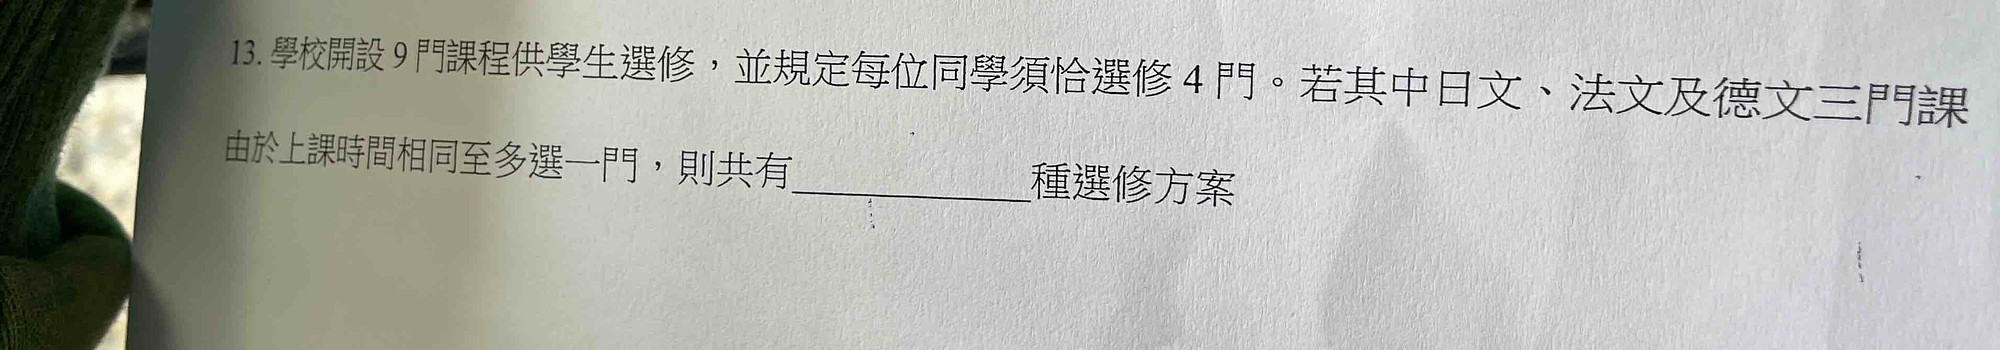 13. 學校開設 9 門課程供學生選修，並規定每位同學須恰選修 4 門。若其中日文、法文及德文三門課
由於上課時間相同至多選一門，則共有__________種選修方案